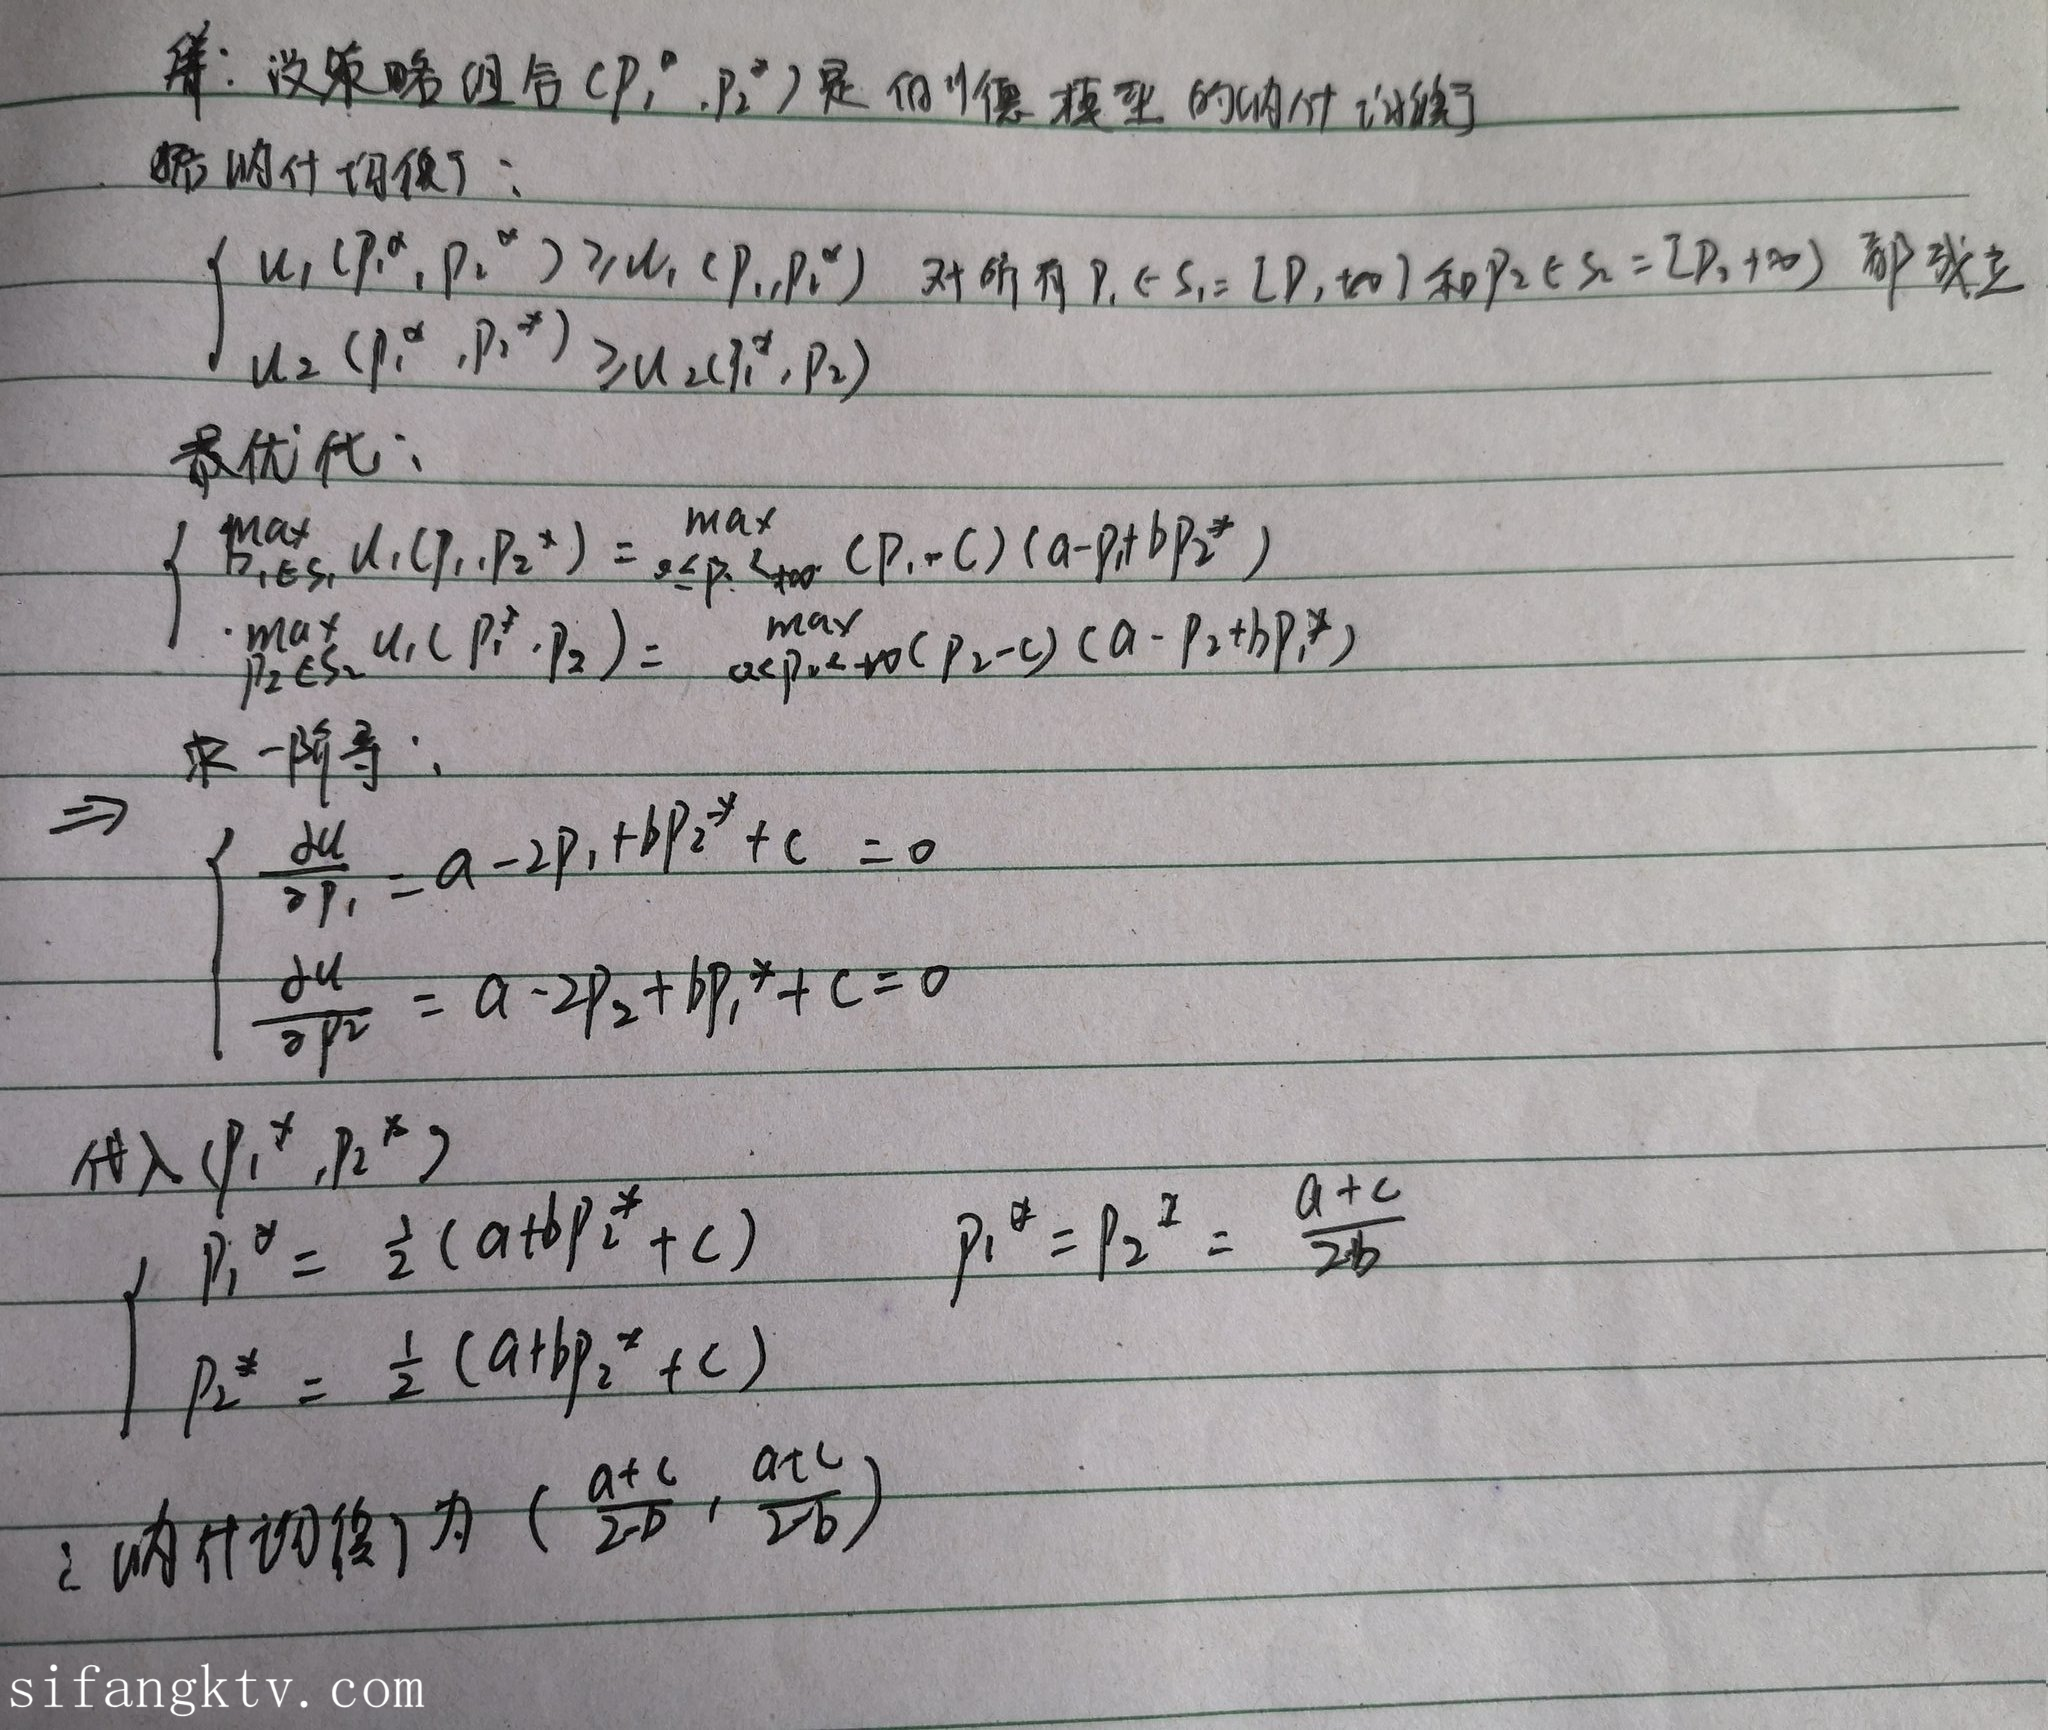 解：设策略组合(P₁*,P₂*)是伯川德模型的纳什均衡
据纳什均衡：
u₁(P₁*,P₂*)≥u₁(P₁,P₂*) 对所有P₁∈S₁=[0,+∞)和P₂∈S₂=[0,+∞)都成立
u₂(P₁*,P₂*)≥u₂(P₁*,P₂)
最优化：
max P₁∈S₁ u₁(P₁,P₂*)= max 0≤P₁<+∞ (P₁-C)(a-P₁+bP₂*)
max P₂∈S₂ u₁(P₁*,P₂)= max 0≤P₂<+∞ (P₂-C)(a-P₂+bP₁*)
求一阶导：
⇒
∂u/∂P₁=a-2P₁+bP₂*+c=0
∂u/∂P₂=a-2P₂+bP₁*+c=0
代入(P₁*,P₂*)
P₁*=1/2(a+bP₂*+c) P₁*=P₂*=(a+c)/(2-b)
P₂*=1/2(a+bP₂*+c)
∴纳什均衡为((a+c)/(2-b),(a+c)/(2-b))
sifangktv.com